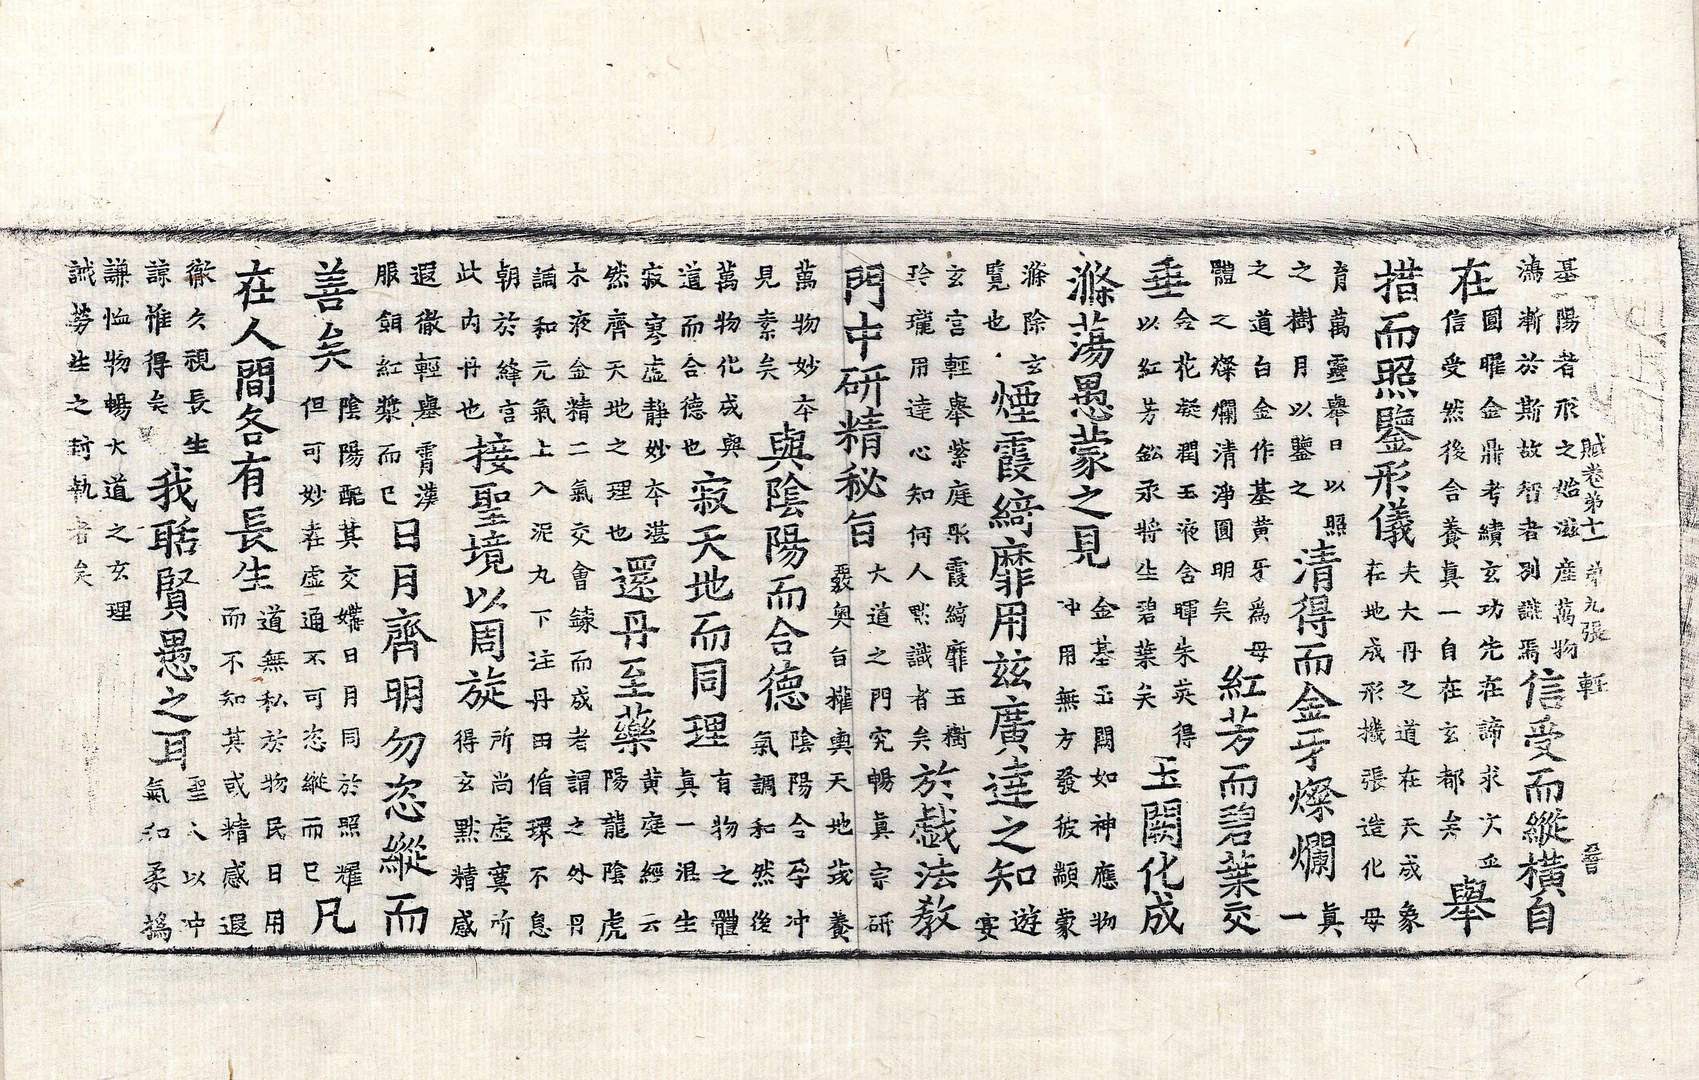 賦卷第十一 第九張 輕 晉
基陽者形之始滋產萬物
鴻漸於斯故智者別識焉
信受而縱橫自
在
圓曜金鼎考績玄功先在諦求次五
信受然後含養真一自在玄都矣
舉
措而照鑒形儀
夫大丹之道在天成象
在地成形機張造化母
育萬靈舉日以照
之樹月以鑒之
清得而金牙燦爛
真
一
之道白金作基黃牙為母
體之燦爛清淨圓明矣
紅芳而碧葉交
垂
金花凝潤玉液含暉朱英得
以紅芳鈆汞將生碧葉矣
玉闕化成
滌蕩愚蒙之見
金基玉闕如神應物
冲用無方發彼顓蒙
滌除玄
覽也
煙霞綺靡用茲廣達之知
遊
宴
玄宮輕舉紫庭眎霞綺靡玉樹
玲瓏用達心知何人默識者矣
於戲法教
門中研精秘旨
大道之門究暢真宗研
覈奧旨擢輿天地茂養
萬物妙本
見素矣
與陰陽而合德
陰陽合孕冲
氣調和然後
萬物化成與
道而合德也
寂天地而同理
有物之體
真一混生
寂寥虛靜妙本湛
然齊天地之理也
還丹至藥
黃庭經云
陽龍陰虎
木液金精二氣交會鍊而成者謂之外丹
論和元氣上入泥丸下注丹田循環不息
朝於絳宮
此內丹也
接聖境以周旋
所尚虛寞所
得玄默精感
遐徹輕舉霄漢
服餌紅漿而已
日月齊明勿恣縱而
善矣
陰陽配其交媾日月同於照耀
但可妙在虛通不可恣縱而已
凡
在人間各有長生
道無私於物民日用
而不知其或精感退
徹久視長生
諒雅得矣
我聒賢愚之耳
聖人以冲
氣和柔撝
謙恤物暢大道之玄理
誡勞生之封執者矣